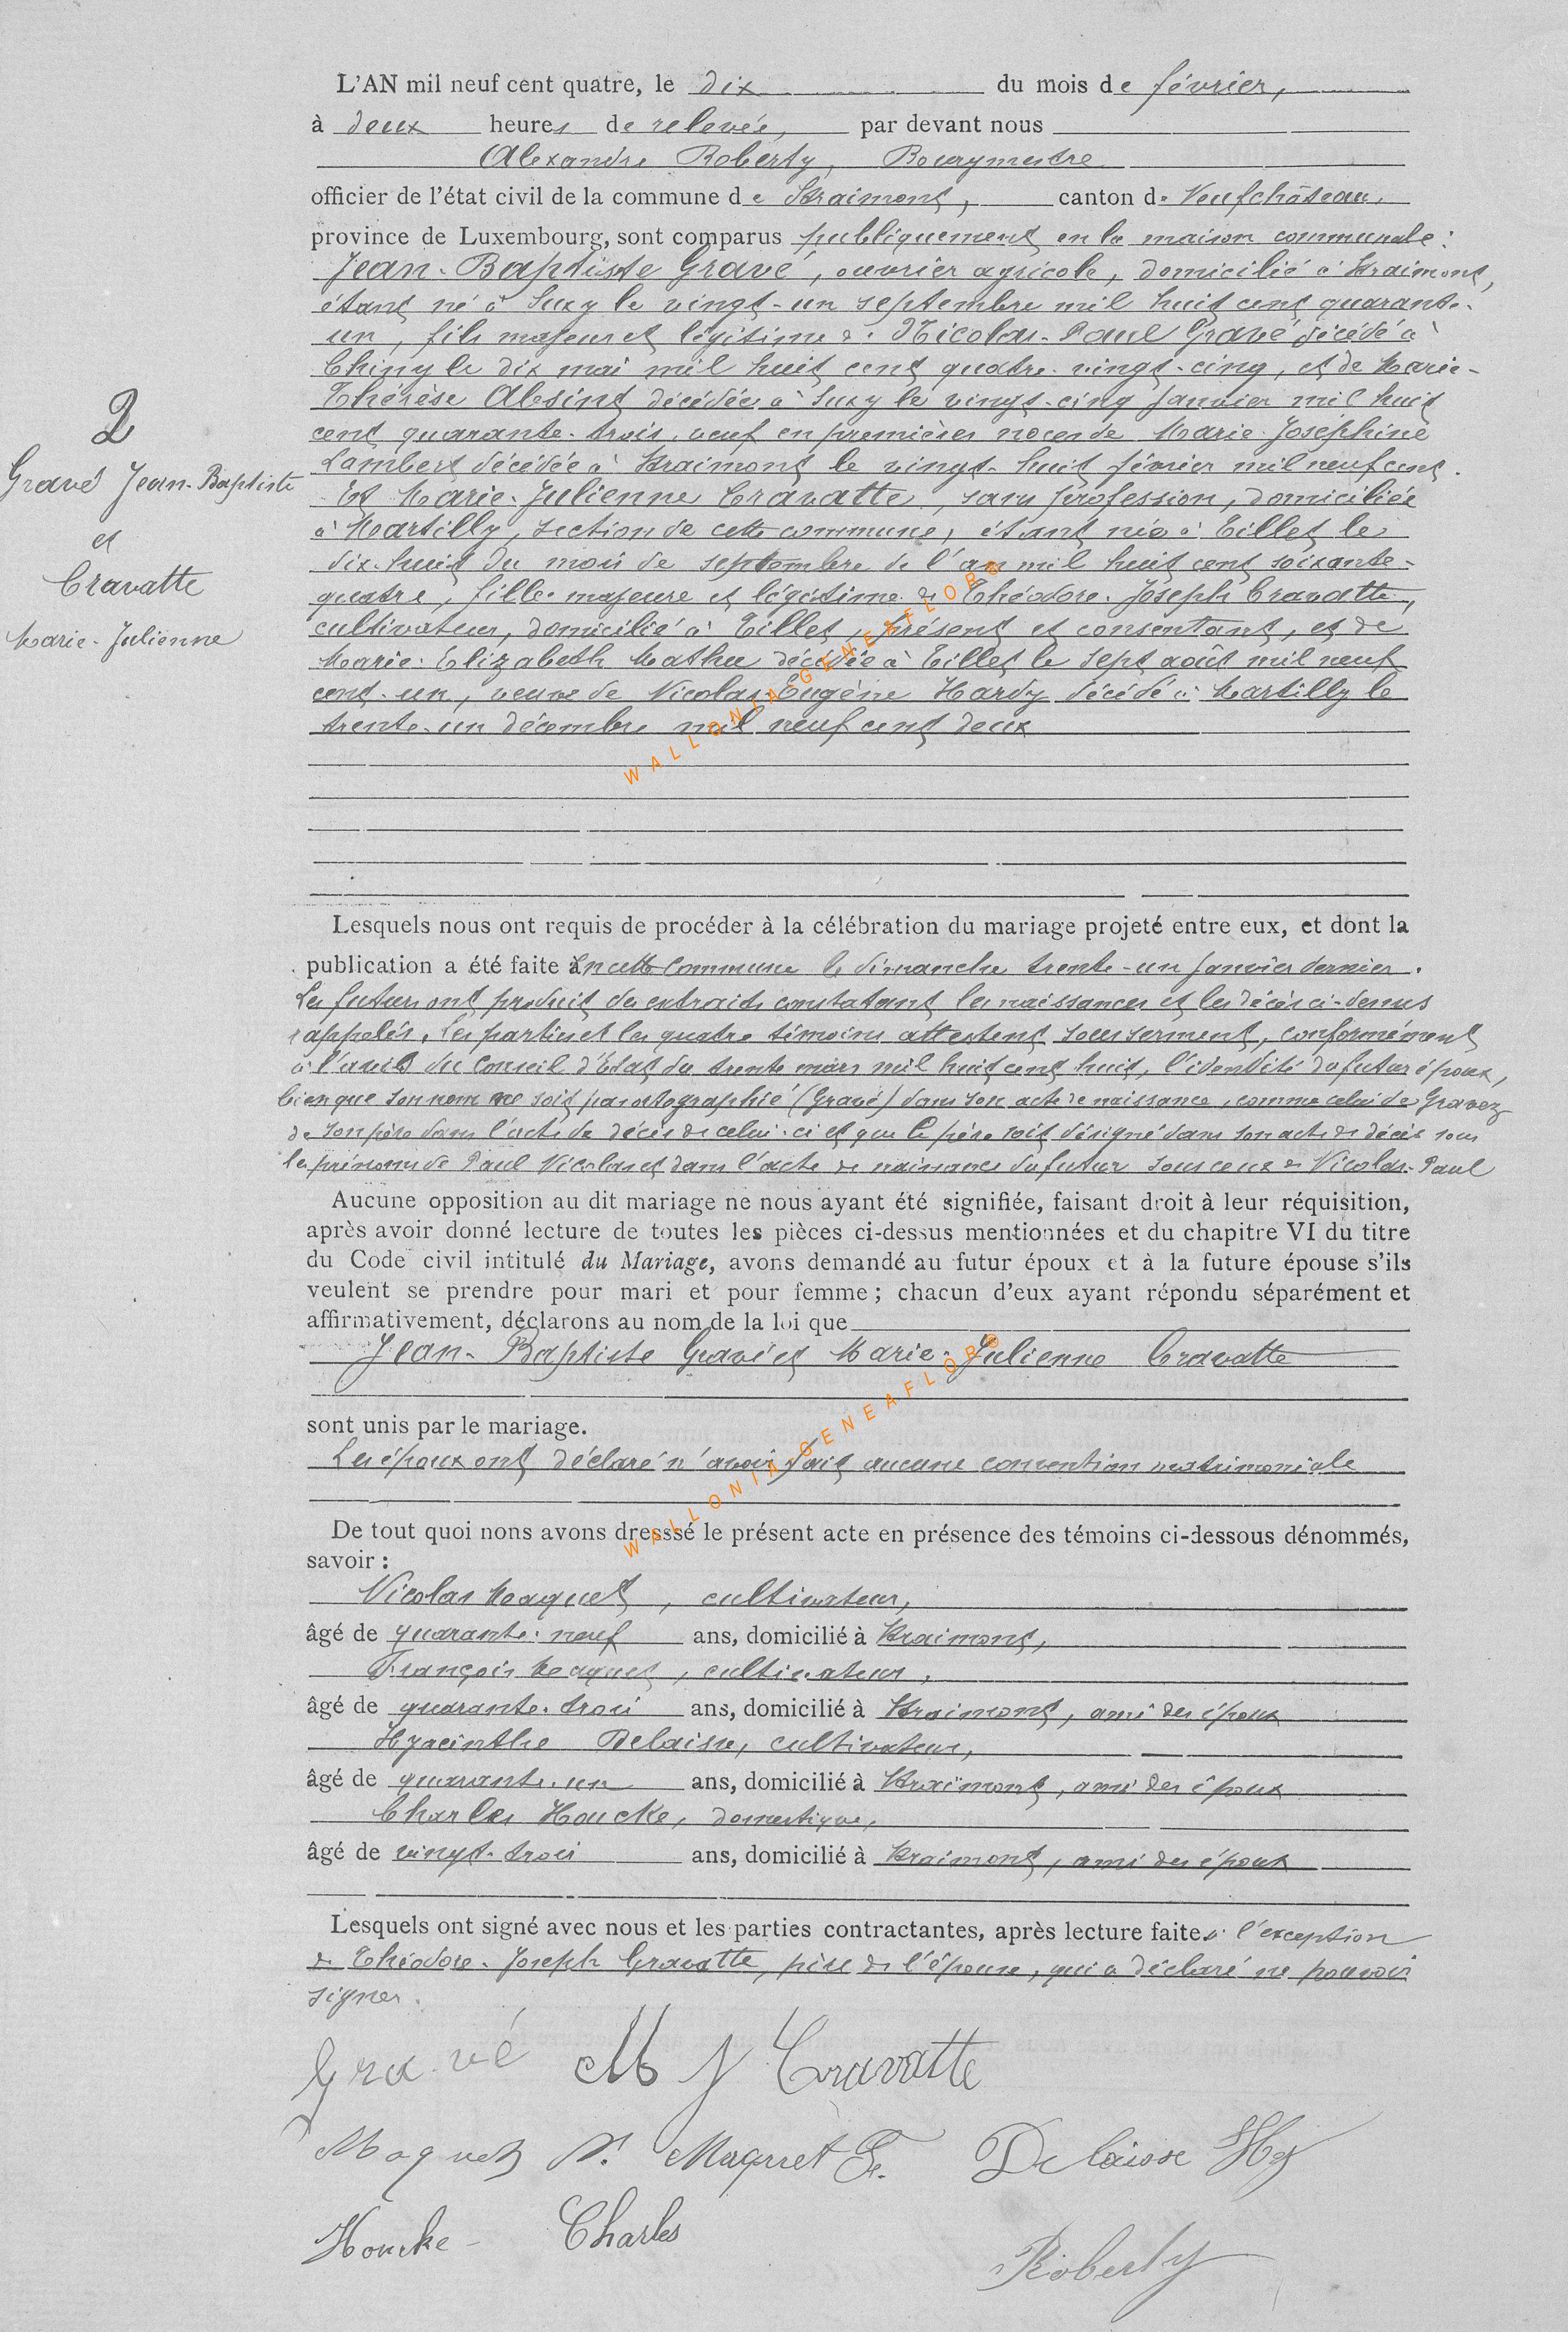 L'AN mil neuf cent quatre, le dix du mois de février,
à deux heures de relevée, par devant nous
Alexandre Roberty, Bourgmestre
officier de l'état civil de la commune de Straimont, canton de Neufchâteau,
province de Luxembourg, sont comparus publiquement en la maison communale :
Jean-Baptiste Gravé, ouvrier agricole, domicilié à Straimont,
étant né à Suxy le vingt-un septembre mil huit cent quarante-
un, fils majeur et légitime de Nicolas-Paul Gravé décédé à
Chiny le dix mai mil huit cent quatre-vingt-cinq, et de Marie-
Thérèse Alesint décédée à Suxy le vingt-cinq janvier mil huit
cent quarante-trois, veuf en premières noces de Marie-Joséphine
Lambert décédée à Straimont le vingt-huit février mil neuf cent.
Et Marie-Julienne Cravatte, sans profession, domiciliée
à Martilly, section de cette commune, étant née à Tillet le
dix-huit du mois de septembre de l'an mil huit cent soixante-
quatre, fille majeure et légitime de Théodore-Joseph Cravatte,
cultivateur, domicilié à Tillet, présent et consentant, et de
Marie-Elizabeth Mathu décédée à Tillet le sept août mil neuf
cent-un, veuve de Nicolas-Eugène Hardy décédé à Martilly le
trente-un décembre mil neuf cent deux
2
Gravé Jean-Baptiste
et
Cravatte
Marie-Julienne
WALLONIA-GENEAFLORE
Lesquels nous ont requis de procéder à la célébration du mariage projeté entre eux, et dont la
publication a été faite en cette commune le dimanche trente-un janvier dernier.
Les futurs ont produit des extraits constatant les naissances et les décès ci-dessus
rappelés. Les parties et les quatre témoins attestent sous serment, conformément
à l'avis du Conseil d'Etat du trente mars mil huit cent huit, l'identité du futur époux,
bien que son nom ne soit pas ortographié (Gravé) dans son acte de naissance, comme celui de Gravez
de son père dans l'acte de décès de celui-ci et que le père soit désigné dans son acte de décès sous
les prénoms de Paul Nicolas et dans l'acte de naissance du futur sous ceux de Nicolas-Paul
Aucune opposition au dit mariage ne nous ayant été signifiée, faisant droit à leur réquisition,
après avoir donné lecture de toutes les pièces ci-dessus mentionnées et du chapitre VI du titre
du Code civil intitulé du Mariage, avons demandé au futur époux et à la future épouse s'ils
veulent se prendre pour mari et pour femme ; chacun d'eux ayant répondu séparément et
affirmativement, déclarons au nom de la loi que
Jean-Baptiste Gravé et Marie-Julienne Cravatte
sont unis par le mariage.
Les époux ont déclaré n'avoir fait aucune convention matrimoniale
WALLONIA-GENEAFLORE
De tout quoi nons avons dresssé le présent acte en présence des témoins ci-dessous dénommés,
savoir :
Nicolas Maquet, cultivateur,
âgé de quarante-neuf ans, domicilié à Straimont,
François Maquet, cultivateur,
âgé de quarante-trois ans, domicilié à Straimont, ami des époux
Hyacinthe Delaisse, cultivateur,
âgé de quarante-un ans, domicilié à Straimont, ami des époux
Charles Houcke, domestique,
âgé de vingt-trois ans, domicilié à Straimont, ami des époux
Lesquels ont signé avec nous et les parties contractantes, après lecture faite, à l'exception
de Théodore-Joseph Cravatte, père de l'épouse, qui a déclaré ne pouvoir
signer.
Gravé M J Cravatte
Maquet N. Maquet F. Delaisse Hy
Houcke Charles
Roberty